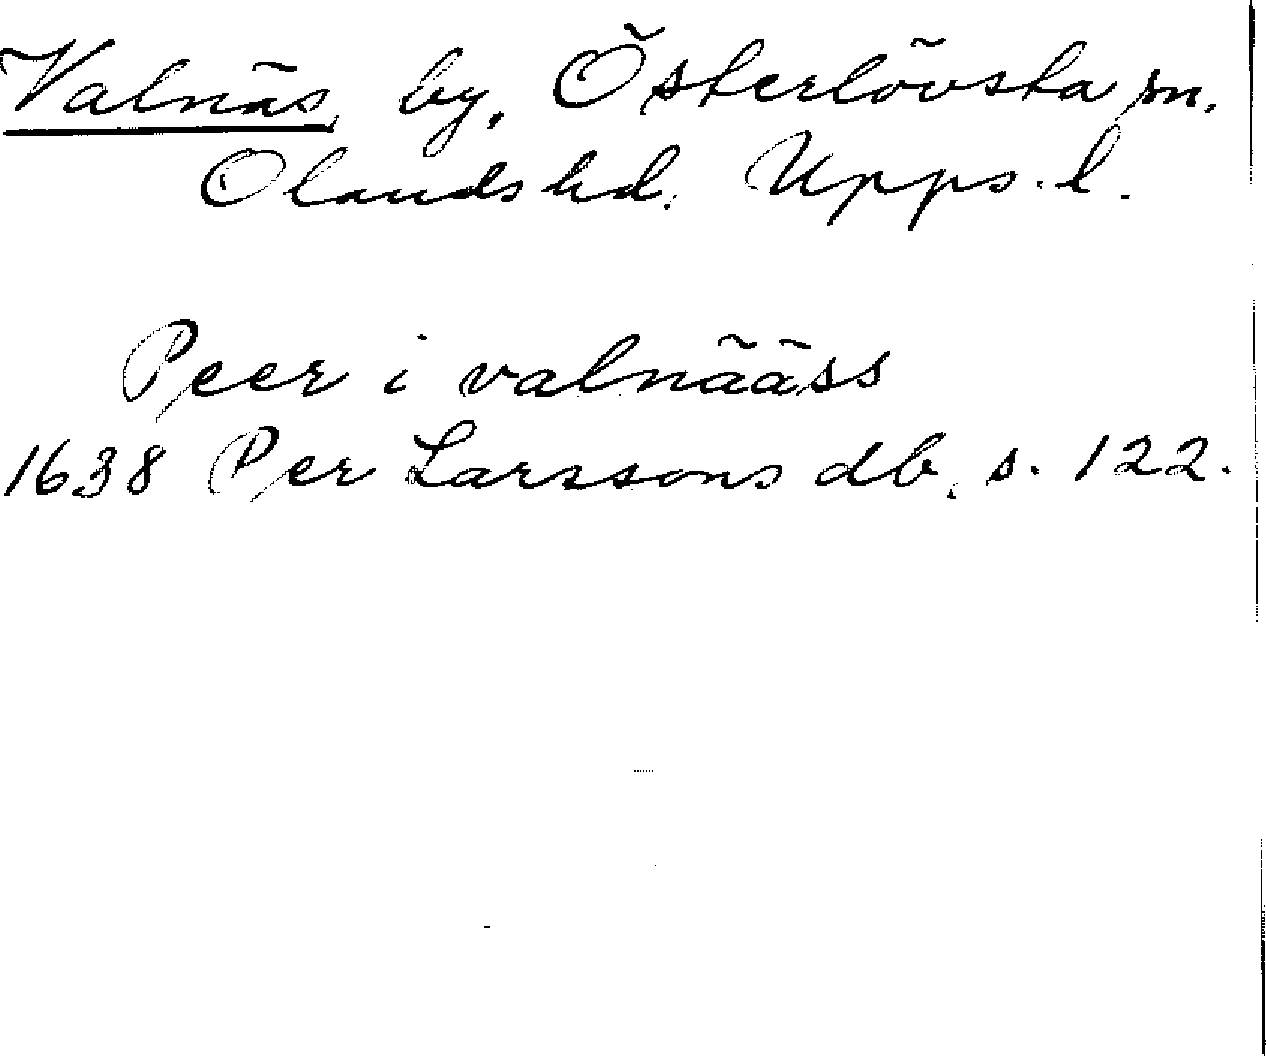 Valnäs, by, Österlövsta sn.
Olands hd. Upps. l.
Peer i valnääss
1638 Per Larssons db. s. 122.